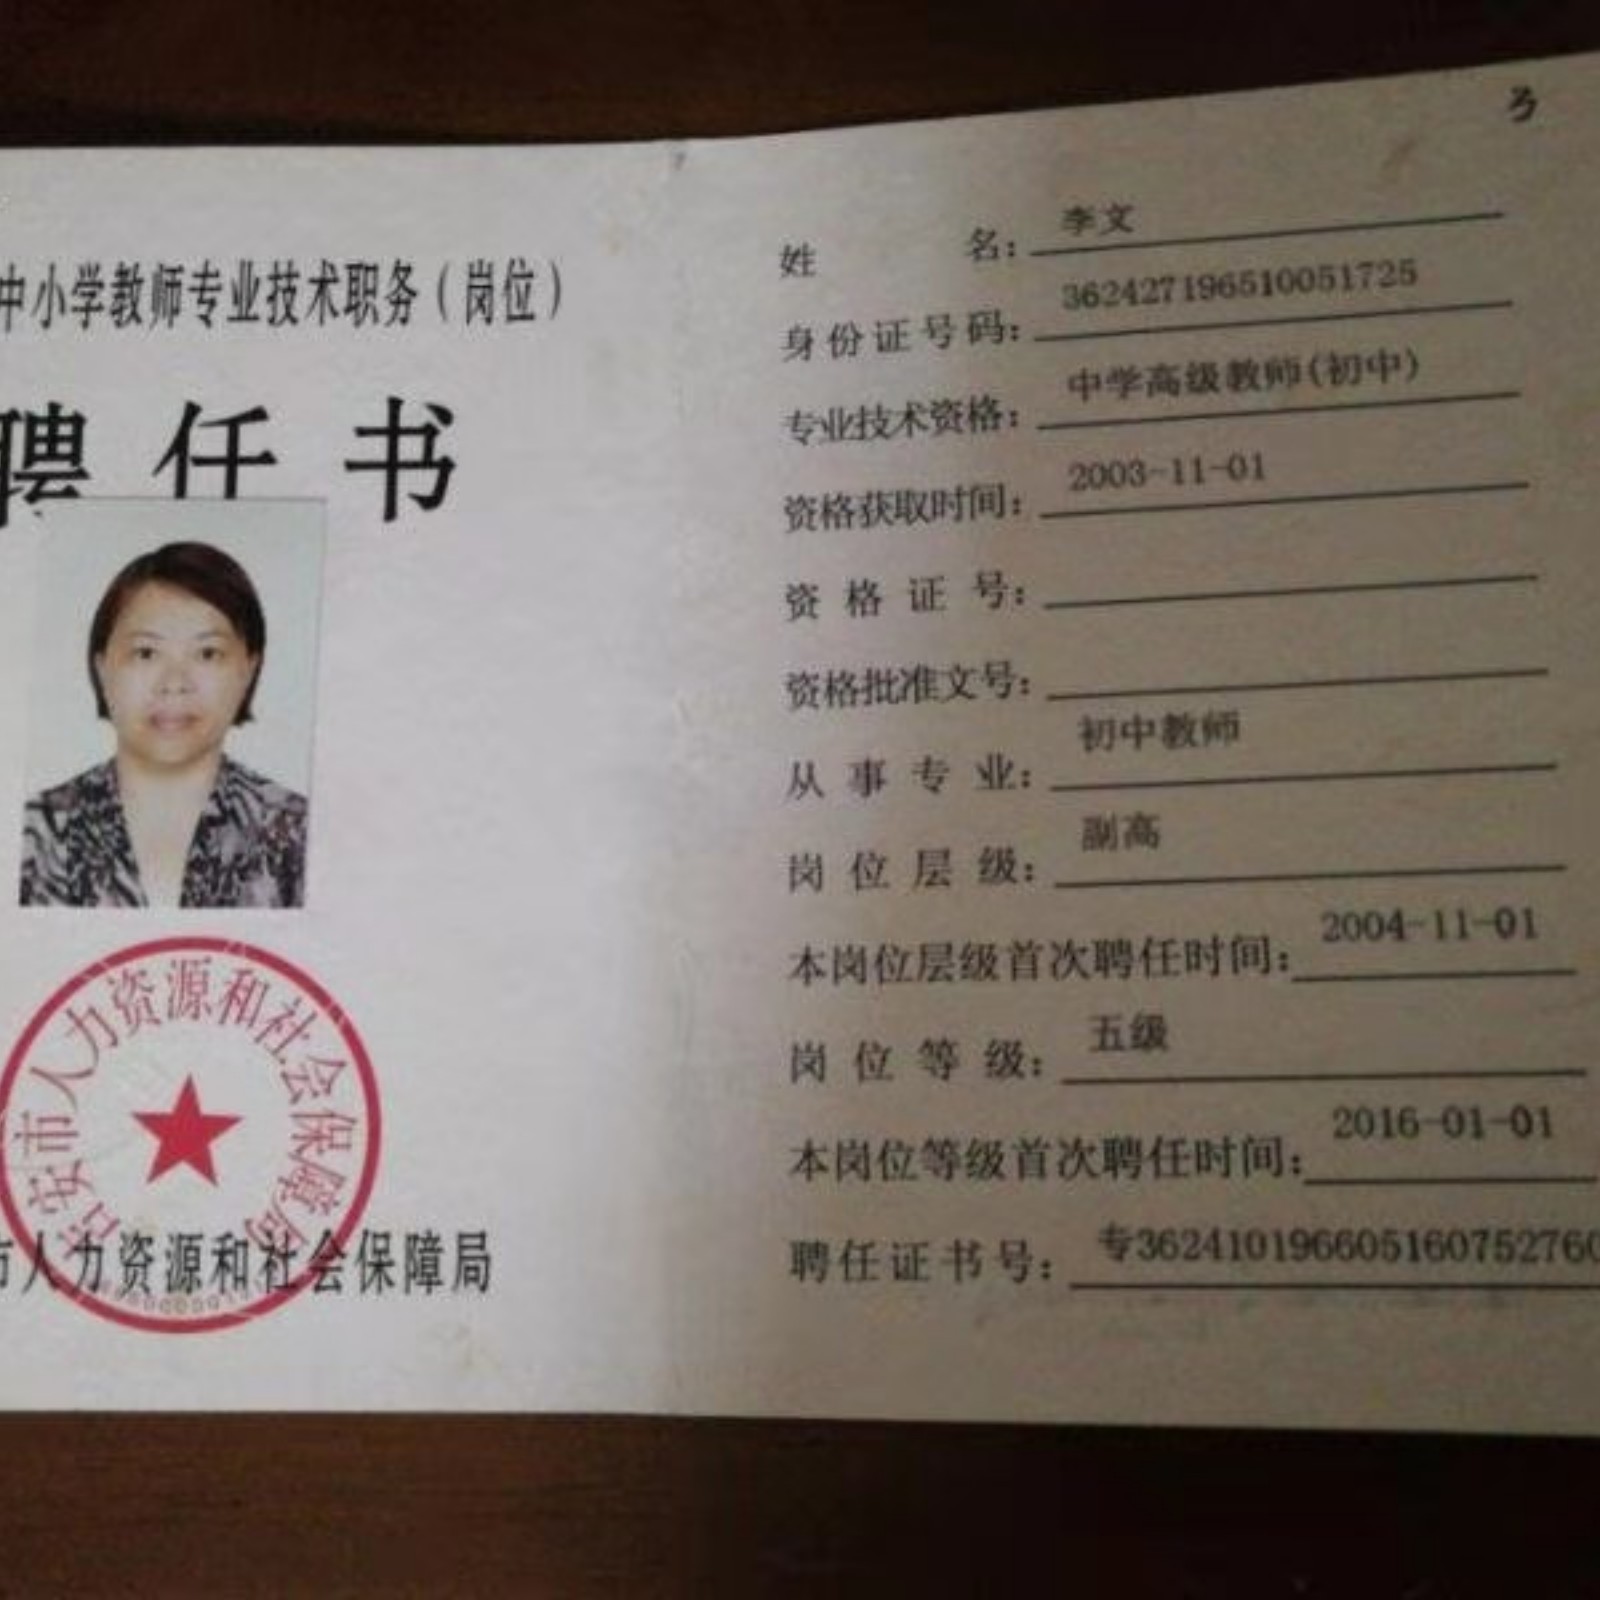 中小学教师专业技术职务（岗位）
聘任书
吉安市人力资源和社会保障局
市人力资源和社会保障局
姓名：李文
身份证号码：362427196510051725
专业技术资格：中学高级教师(初中)
资格获取时间：2003-11-01
资格证号：
资格批准文号：
从事专业：初中教师
岗位层级：副高
本岗位层级首次聘任时间：2004-11-01
岗位等级：五级
本岗位等级首次聘任时间：2016-01-01
聘任证书号：专362410196605160752760